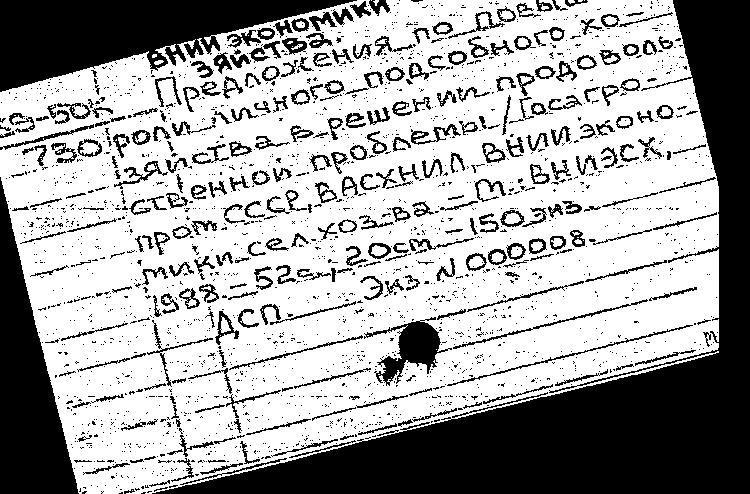 ВНИИ ЭКОНОМИКИ
ЗЯЙСТВА.
Предложения по повыш
89-50к роли личного подсобного хо-
730 зяйства в решении продоволь-
ственной проблемы/Госагро-
пром СССР, ВАСХНИЛ, ВНИИ эконо-
мики сел. хоз-ва. – М.: ВНИЭСХ,
1988. – 52с.; 20см. – 150 экз.
ДСП. Экз. N 000008.